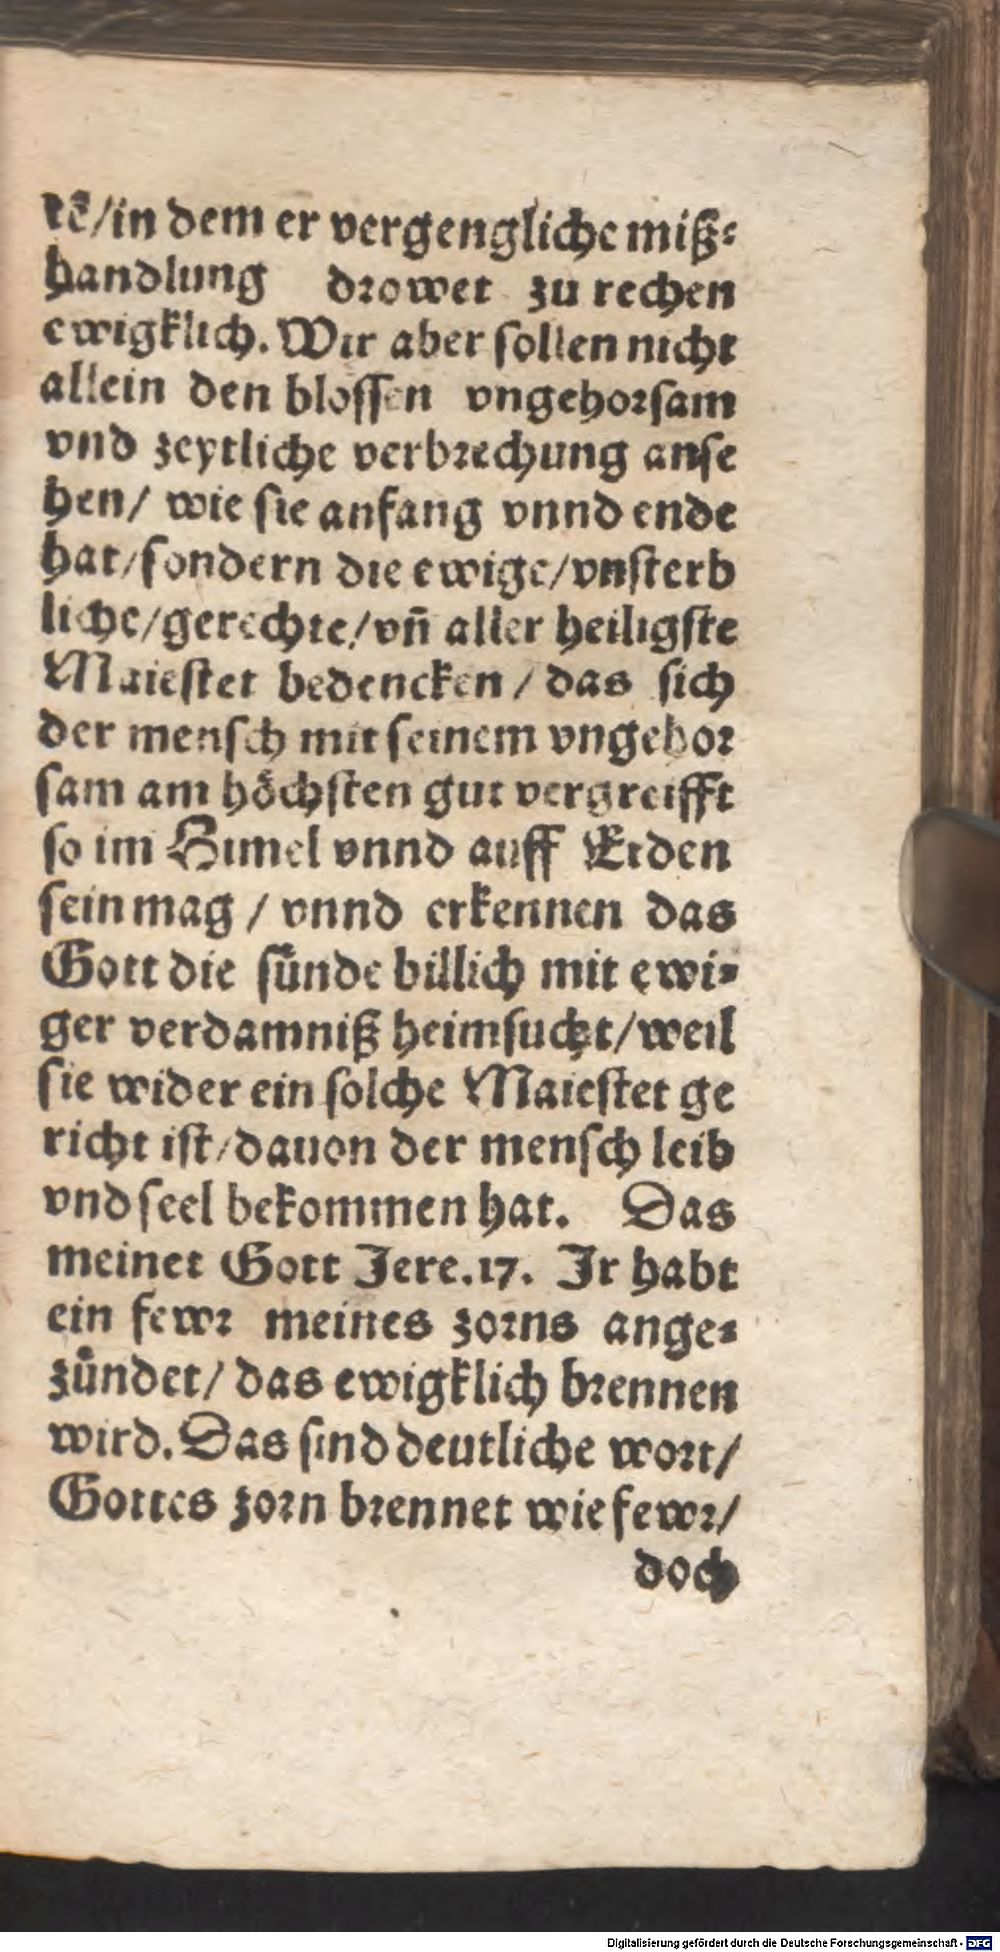 tẽ/in dem er vergengliche miß⸗
handlung drowet zu rechen
ewigklich. Wir aber sollen nicht
allein den blossen vngehorsam
vnd zeytliche verbrechung anse
hen/ wie sie anfang vnnd ende
hat/sondern die ewige/vnsterb
liche/gerechte/vñ aller heiligste
Maiestet bedencken/ das sich
der mensch mit seinem vngehor
sam am höchsten gut vergreifft
so im Himel vnnd auff Erden
sein mag / vnnd erkennen das
Gott die sünde billich mit ewi⸗
ger verdamniß heimsucht/weil
sie wider ein solche Maiestet ge
richt ist/dauon der mensch leib
vnd seel bekommen hat. Das
meinet Gott Jere.17. Jr habt
ein fewr meines zorns ange⸗
zündet/ das ewigklich brennen
wird. Das sind deutliche wort/
Gottes zorn brennet wie fewr/
doch
Digitalisierung gefördert durch die Deutsche Forschungsgemeinschaft - DFG